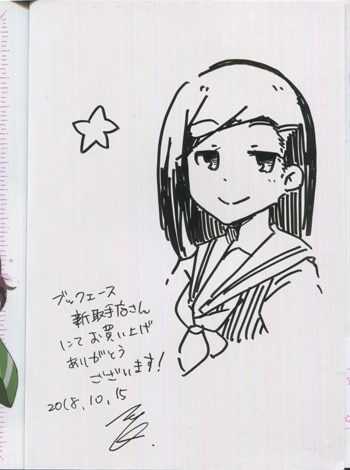 ブックエース
新取手店さん
にてお買い上げ
ありがとう
ございます!
2018.10.15